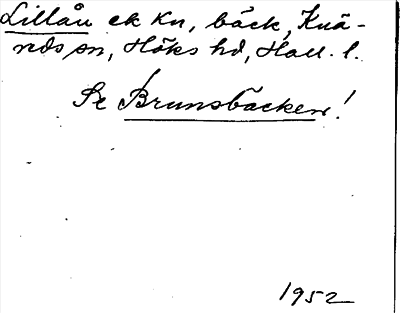 Lillån ek Kn, bäck, Knä-
reds sn, Höks hd, Hall. l.
Se Brunsbäcken!
1952